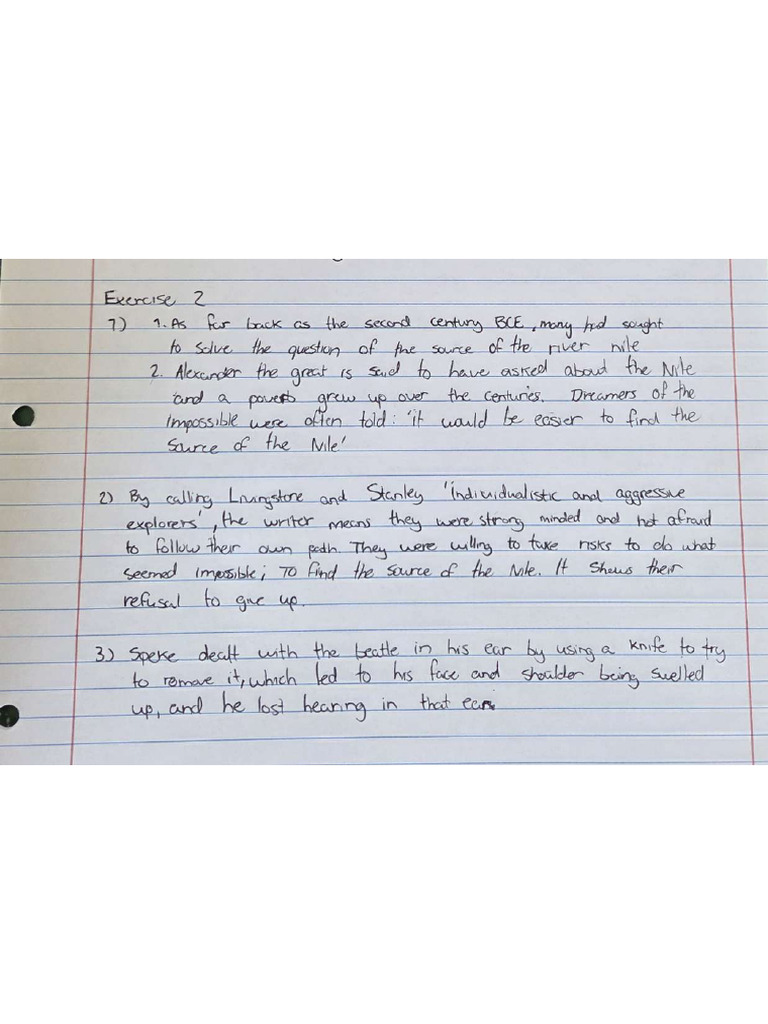 Exercise 2
1) 1. As far back as the second century BCE, many had sought
to solve the question of the source of the river nile
2. Alexander the great is said to have asked about the Nile
and a poverb grew up over the centuries. Dreamers of the
impossible were often told: 'it would be easier to find the
source of the Nile'
2) By calling Livingstone and Stanley 'individualistic and aggressive
explorers', the writer means they were strong minded and not afraid
to follow their own path. They were willing to take risks to do what
seemed impossible; To find the source of the Nile. It shows their
refusal to give up.
3) Speke dealt with the beatle in his ear by using a knife to try
to remove it, which led to his face and shoulder being swelled
up, and he lost hearing in that ear.